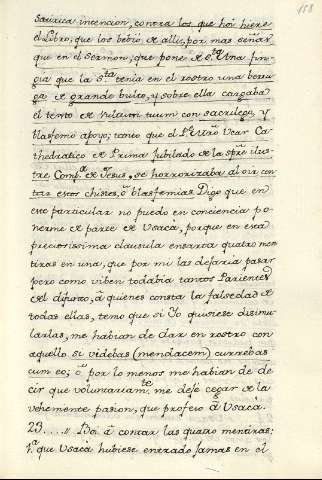 158
satirica intencion, contra los que hoi hiere
el Libro; que los bebiò de alli; por mas señas
que en el Sermon, que pone de Sta. Una
gia que la Sta. tenia en el rostro una berru
ga de grande bulto, y sobre ella cargaba
el texto de tuum con sacrilego, y
blasfemo apoyo; tanto que el P. Mrõ Ucar Ca
thedratico de Prima Jubilado de la spre ilus
tre Compa. de Jesus, se horrorizaba al oir con
tar estos chistes, ô blasfemias. Digo que en
este particular no puedo en conciencia po
nerme de parte de Usaca, porque en esta
preciosissima clausula ensarta quatro men
tiras en una; que por mi las dejaria pasar
pero como viben todabia tantos Parientes
del difunto, à quienes consta la falsedad de
todas ellas, temo que si Yo quisiese disimu
larlas, me habian de dar en rostro con
aquello si videbas (mendacem) currebas
cum eo; ô por lo menos me habian de de
cir que voluntariamte. me dejè cegar de la
vehemente pasion, que profeso â Usacà.
23....,, Boi â contar las quatro mentiras:
1.a que Usacà hubiese entrado jamas en el